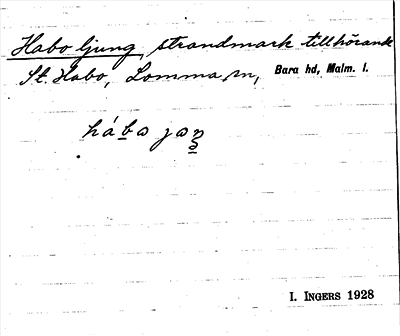 Habo ljung, strandmark tillhörande
St. Habo, Lomma sn, Bara hd, Malm. l.
I. INGERS 1928